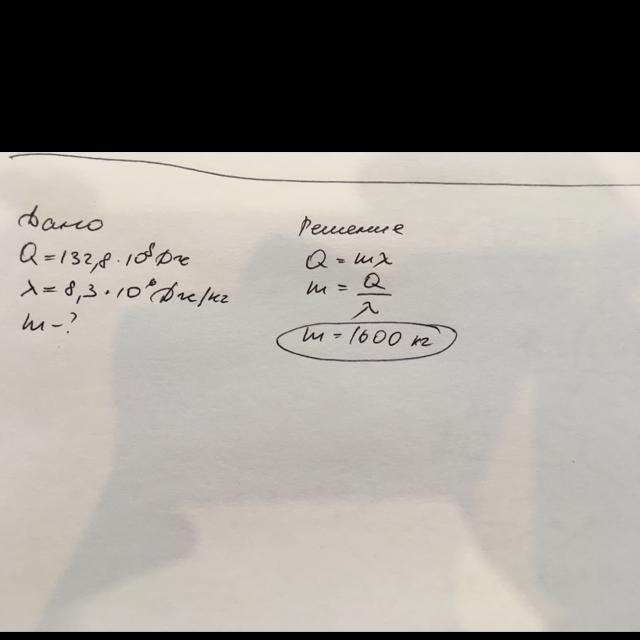 Дано
Q = 132,8 · 10⁸ Дж
λ = 8,3 · 10⁶ Дж/кг
m - ?
Решение
Q = mλ
m = Q/λ
m = 1600 кг